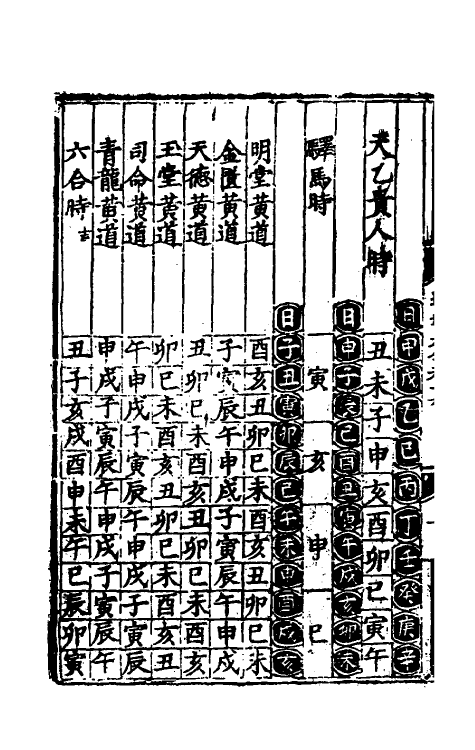 日甲戊乙己丙丁壬癸庚辛
天乙貴人時 丑未子申亥酉卯巳寅午
日申子辰巳酉丑寅午戌亥卯未
驛馬時 寅亥申巳
日子丑寅卯辰巳午未申酉戌亥
明堂黃道 酉亥丑卯巳未酉亥丑卯巳未
金匱黃道 子寅辰午申戌子寅辰午申戌
天德黃道 丑卯巳未酉亥丑卯巳未酉亥
玉堂黃道 卯巳未酉亥丑卯巳未酉亥丑
司命黃道 午申戌子寅辰午申戌子寅辰
青龍黃道 申戌子寅辰午申戌子寅辰午
六合時 丑子亥戌酉申未午巳辰卯寅